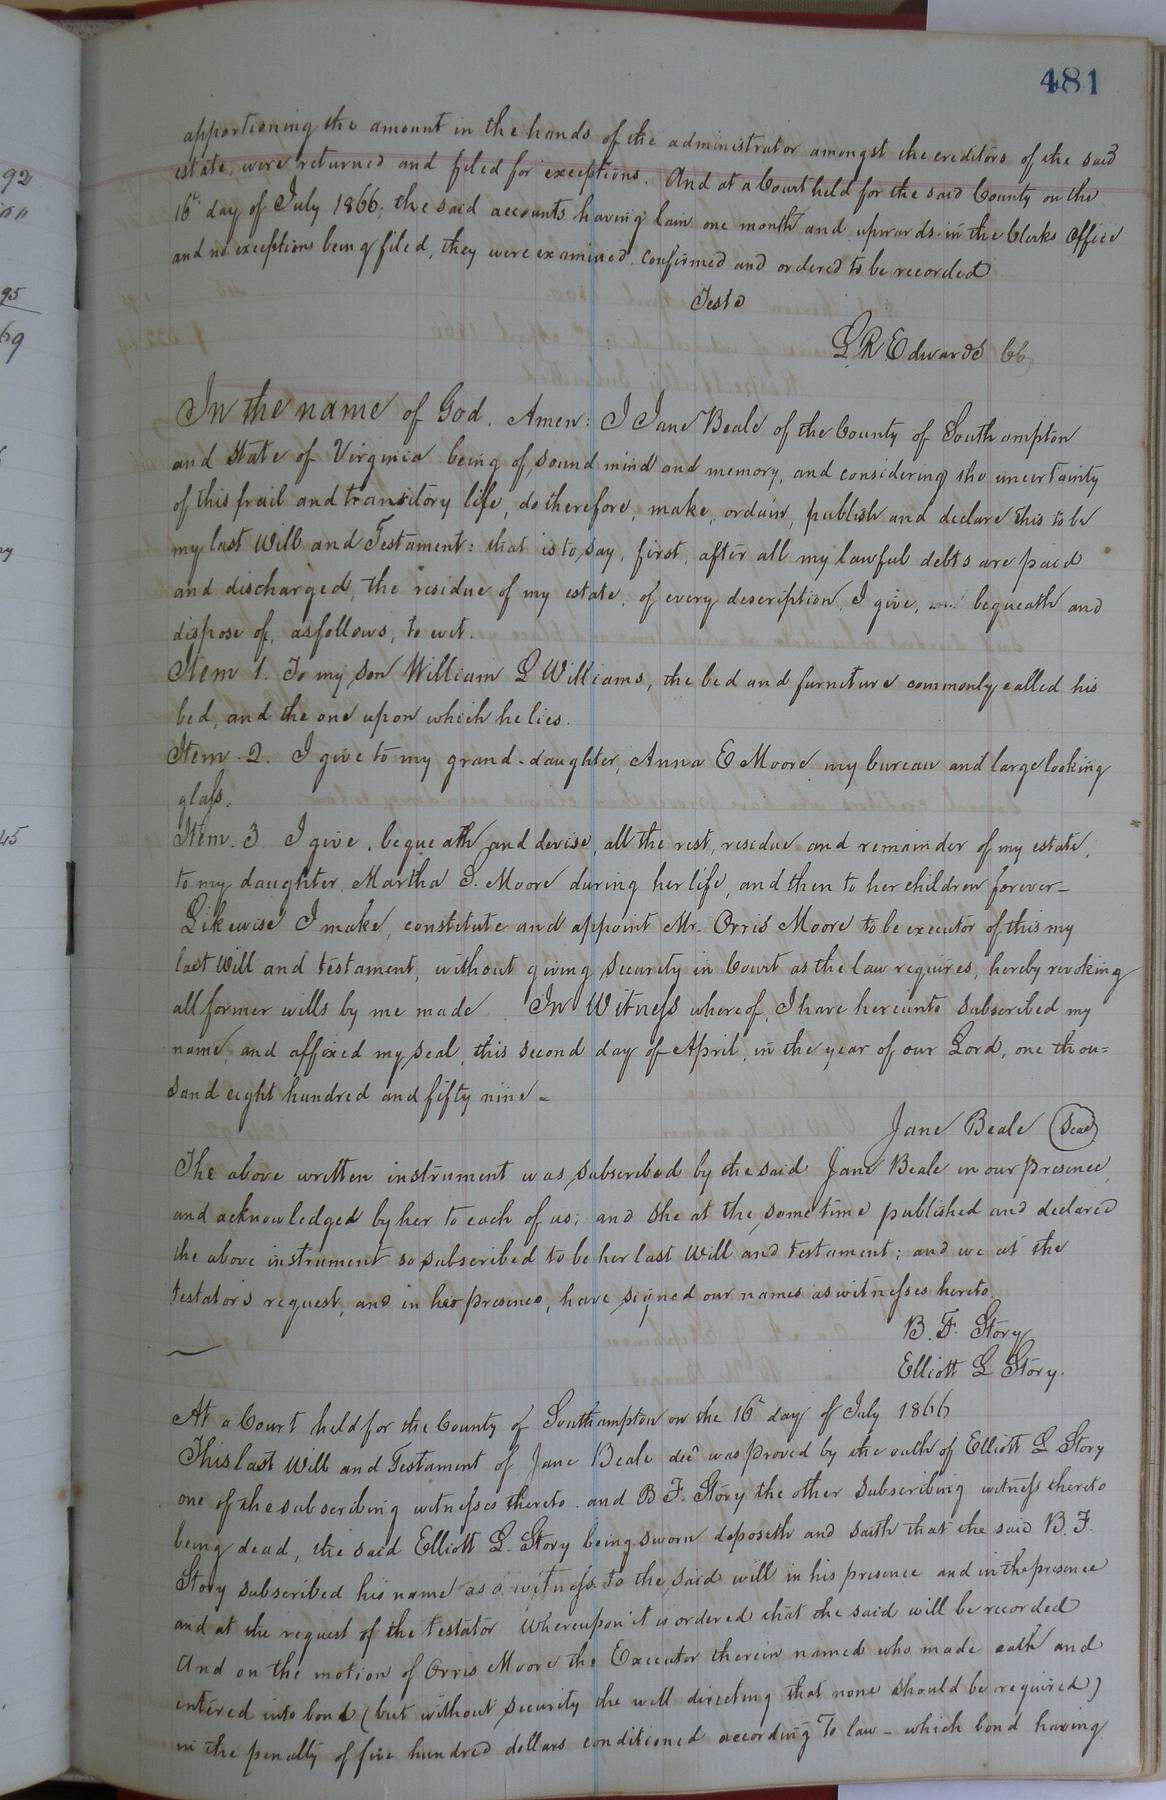 481
apportioning the amount in the hands of the administrator amongst the creditors of the said
estate, were returned and filed for exceptions. And at a Court held for the said County on the
16th day of July 1866, the said accounts having lain one month and upwards in the Clerks office
and no exceptions being filed, they were examined confirmed and ordered to be recorded
Teste
L R Edwards CC
In the name of God. Amen: I Jane Beale of the County of Southampton
and State of Virginia being of sound mind and memory, and considering the uncertainty
of this frail and transitory life, do therefore, make, ordain, publish and declare this to be
my last Will and Testament: that is to say, first, after all my lawful debts are paid
and discharged, the residue of my estate, of every description, I give, bequeath and
dispose of, as follows, to wit.
Item 1. To my son William L Williams, the bed and furniture commonly called his
bed, and the one upon which he lies.
Item 2. I give to my grand-daughter, Anna E Moore my bureau and large looking
glass.
Item. 3 I give, bequeath and devise, all the rest, residue and remainder of my estate,
to my daughter, Martha S. Moore during her life, and then to her children forever-
Likewise I make, constitute and appoint Mr. Orris Moore to be executor of this my
last Will and testament, without giving security in Court as the law requires, hereby revoking
all former wills by me made. In Witness whereof, I have hereunto subscribed my
name, and affixed my seal, this second day of April, in the year of our Lord, one thou=
sand eight hundred and fifty nine-
Jane Beale (Seal)
The above written instrument was subscribed by the said Jane Beale in our presence,
and acknowledged by her to each of us; and she at the same time published and declared
the above instrument so subscribed to be her last Will and testament; and we at the
testators request, and in her presence, have signed our names as witnesses hereto.
B. F. Story
Elliott L Story.
At a Court held for the County of Southampton on the 16th day of July 1866
This last Will and Testament of Jane Beale decd was proved by the oath of Elliott L Story
one of the subscribing witnesses thereto and B F. Story the other subscribing witness thereto
being dead, the said Elliott L. Story being sworn deposeth and saith that the said B. F.
Story subscribed his name as a witness to the said will in his presence and in the presence
and at the request of the testator Whereupon it is ordered that the said will be recorded
And on the motion of Orris Moore the Executor therein named who made oath and
entered into bond (but without security the will directing that none should be required)
in the penalty of five hundred dollars conditioned according to law - which bond having
92
95
69
45